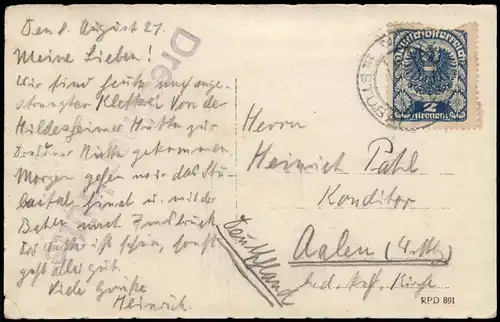 Den 8. August 21.
Meine Lieben!
Wir sind heute nach ange-
strengter Kletterei von der
Hildesheimer Hütte zur
Dresdner Hütte gekommen
Morgen gehen wir das Stu-
baital hinaus u. mit der
Bahn nach Innsbruck
Das Wetter ist schön, sonst
geht alles gut.
Viele Grüße
Heinrich.
Dre
Deutschösterreich
2
Kronen
Herrn
Heinrich Pahl
Konditor
Aalen (Wttbg)
bei d. kath. Kirche
Deutschland
RPD 891